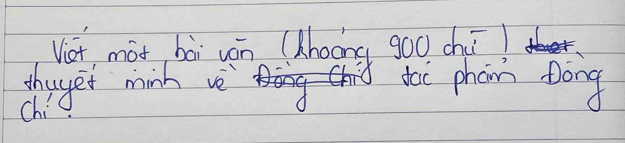 Viết một bài văn (khoảng 900 chữ)
thuyết minh về tác phẩm Đồng
Chí.